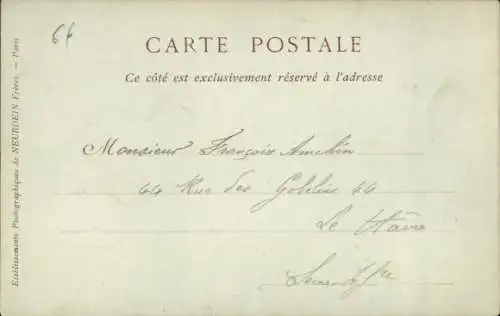 6f
CARTE POSTALE
Ce côté est exclusivement réservé à l'adresse
Monsieur François
44 Rue des Gobelins 44
Le Hâvre
Seine Infre
Etablissements Photographiques de NEURDEIN Frères. — Paris